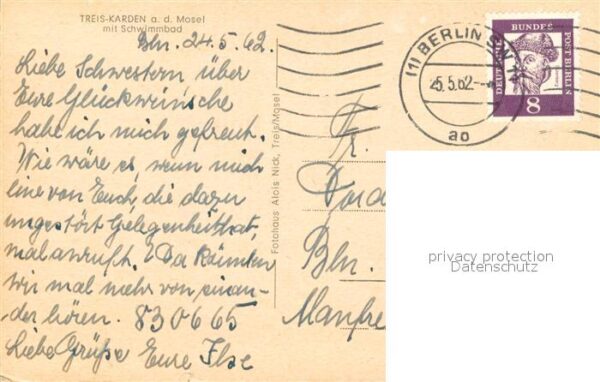 TREIS-KARDEN a. d. Mosel
mit Schwimmbad
Bln. 24.5.62.
Liebe Schwestern über
Eure Glückwünsche
habe ich mich gefreut.
Wie wäre es, wenn mich
eine von Euch, die dazu
ungestört Gelegenheit hat,
mal anruft.? Da könnten
wir mal mehr von einan-
der hören. 830665
Liebe Grüße Eure Ilse
Fotohaus Alois Nick, Treis/Mosel
(1) BERLIN SW
25.5.62
ao
DEUTSCHE
BUNDES
POST BERLIN
8
Fr.
Bln.
Manfre
privacy protection
Datenschutz